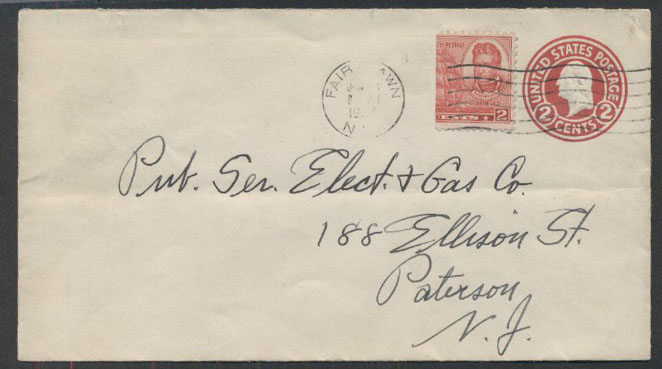 FAIR LAWN
N.
2
UNITED STATES POSTAGE
2 CENTS 2
Pub. Ser. Elect. & Gas Co.
188 Ellison St.
Paterson
N. J.